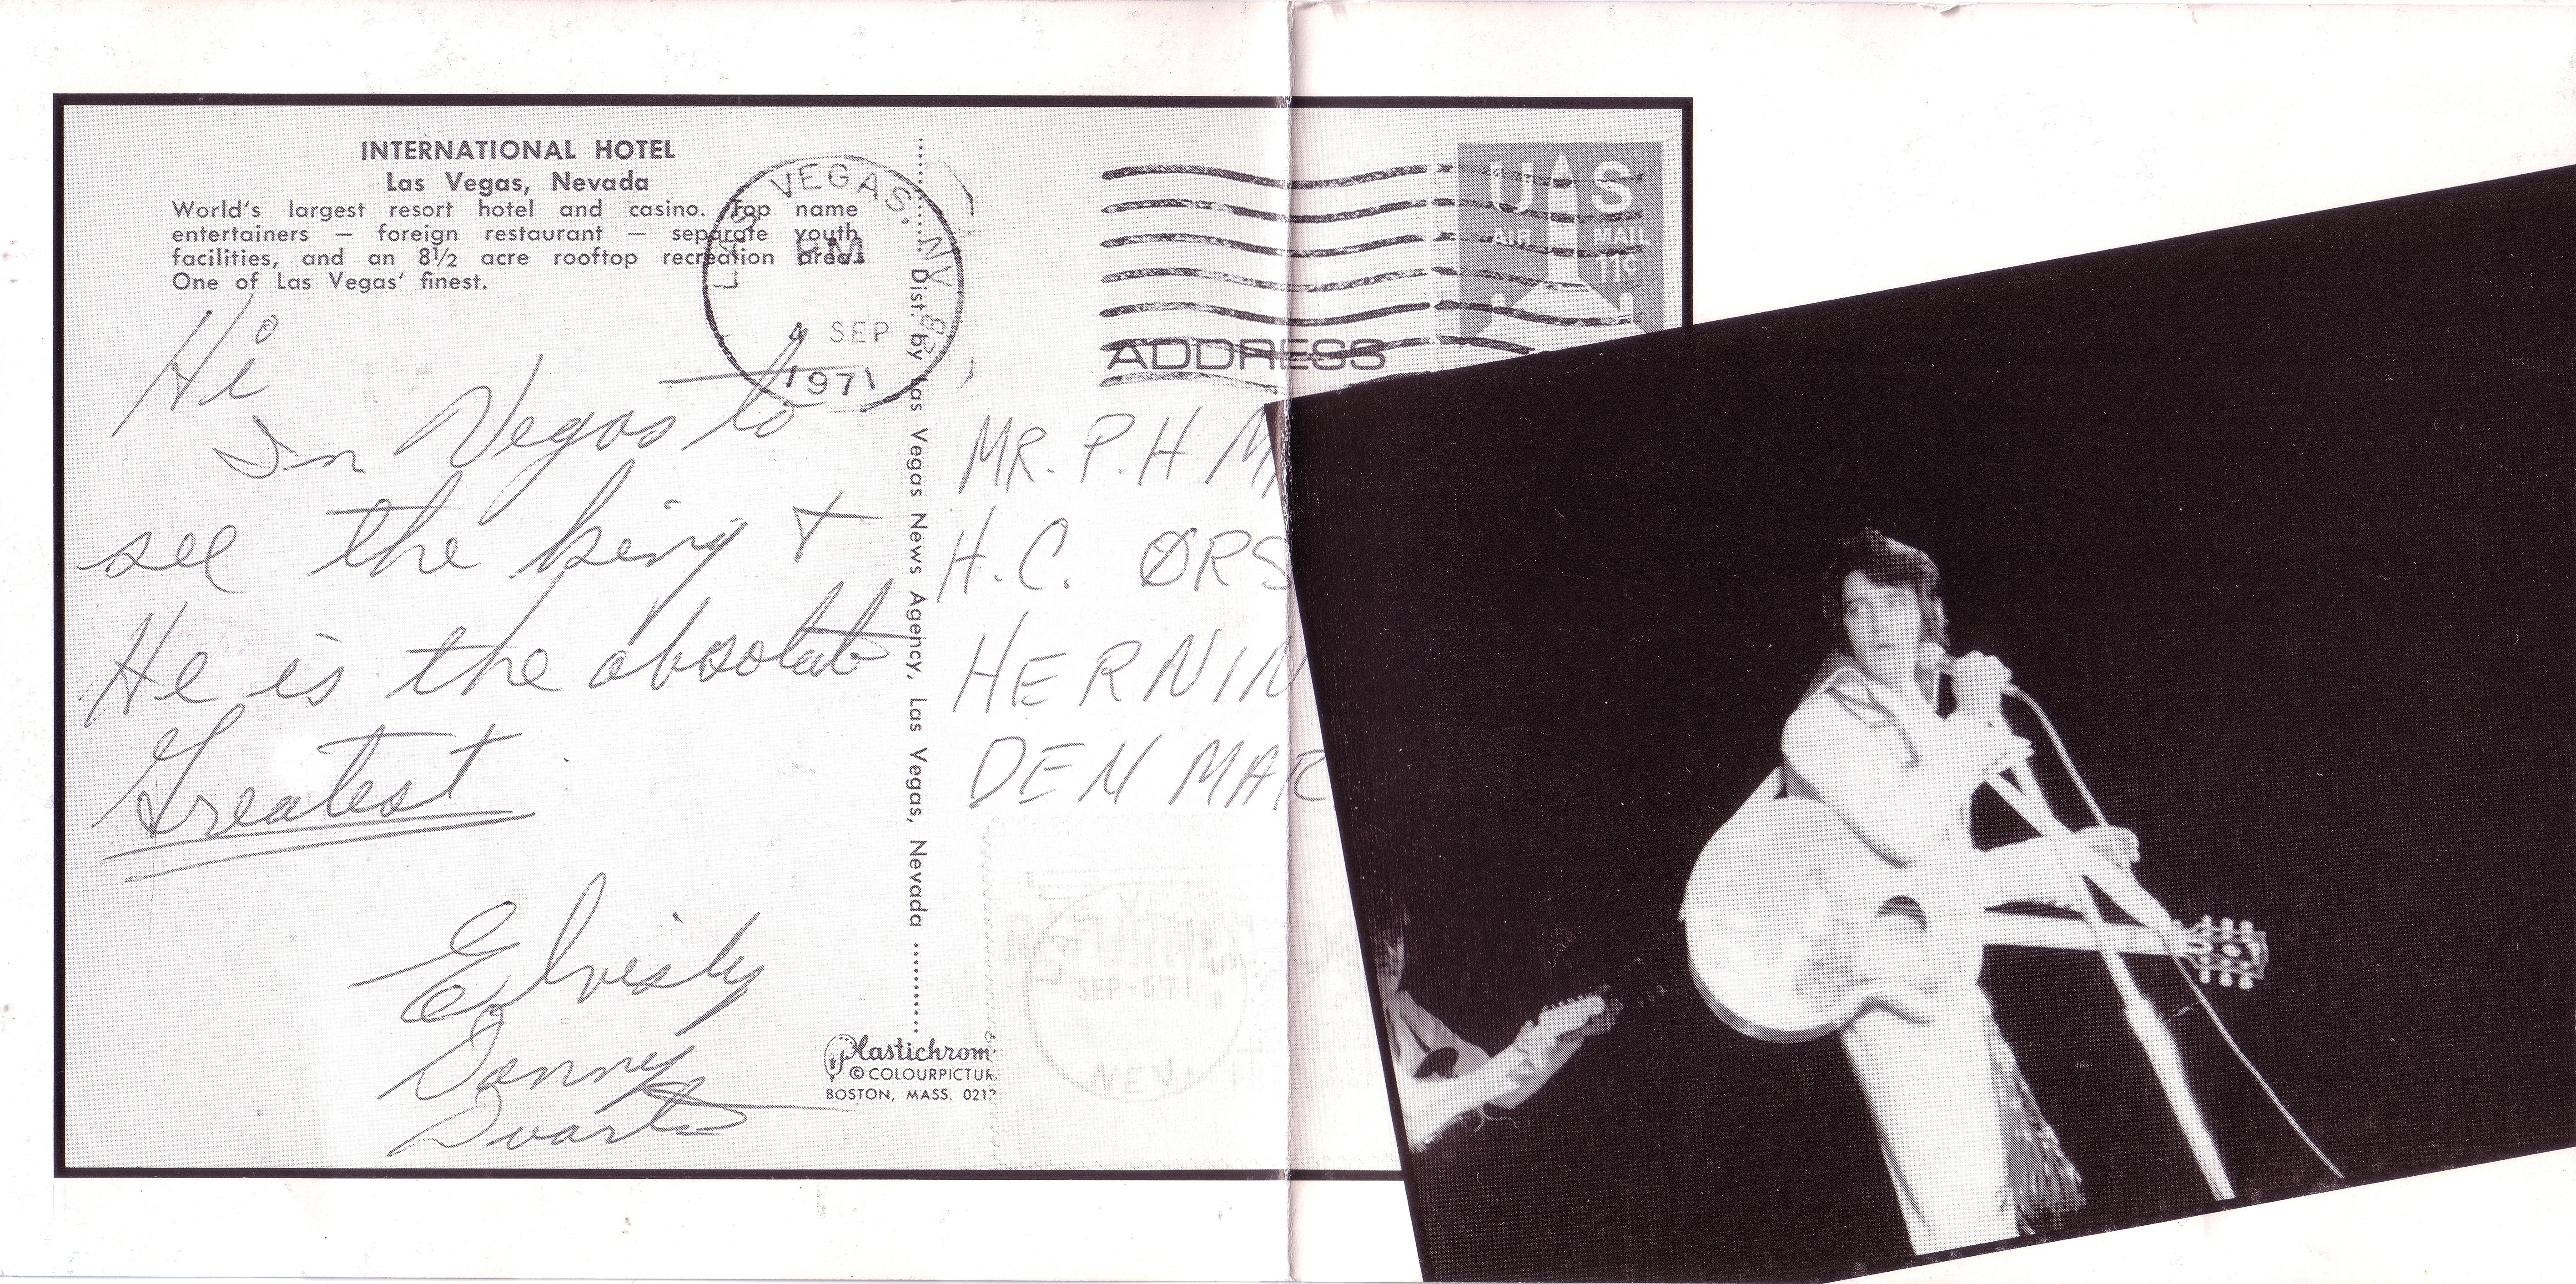 INTERNATIONAL HOTEL
Las Vegas, Nevada
World's largest resort hotel and casino. Top name
entertainers — foreign restaurant — separate youth
facilities, and an 8½ acre rooftop recreation area.
One of Las Vegas' finest.
LAS VEGAS, NV
PM
4 SEP
1971
U S
AIR MAIL
11¢
ADDRESS
Hi
In Vegas to
see the king +
He is the absolute
Greatest
Elvisly
Donny
Duarte
Dist. by Las Vegas News Agency, Las Vegas, Nevada
MR. P. H M
H.C. ØRS
HERNIN
DEN MAR
SEP-5'71
NEV.
Plastichrom
© COLOURPICTUR
BOSTON, MASS. 0212